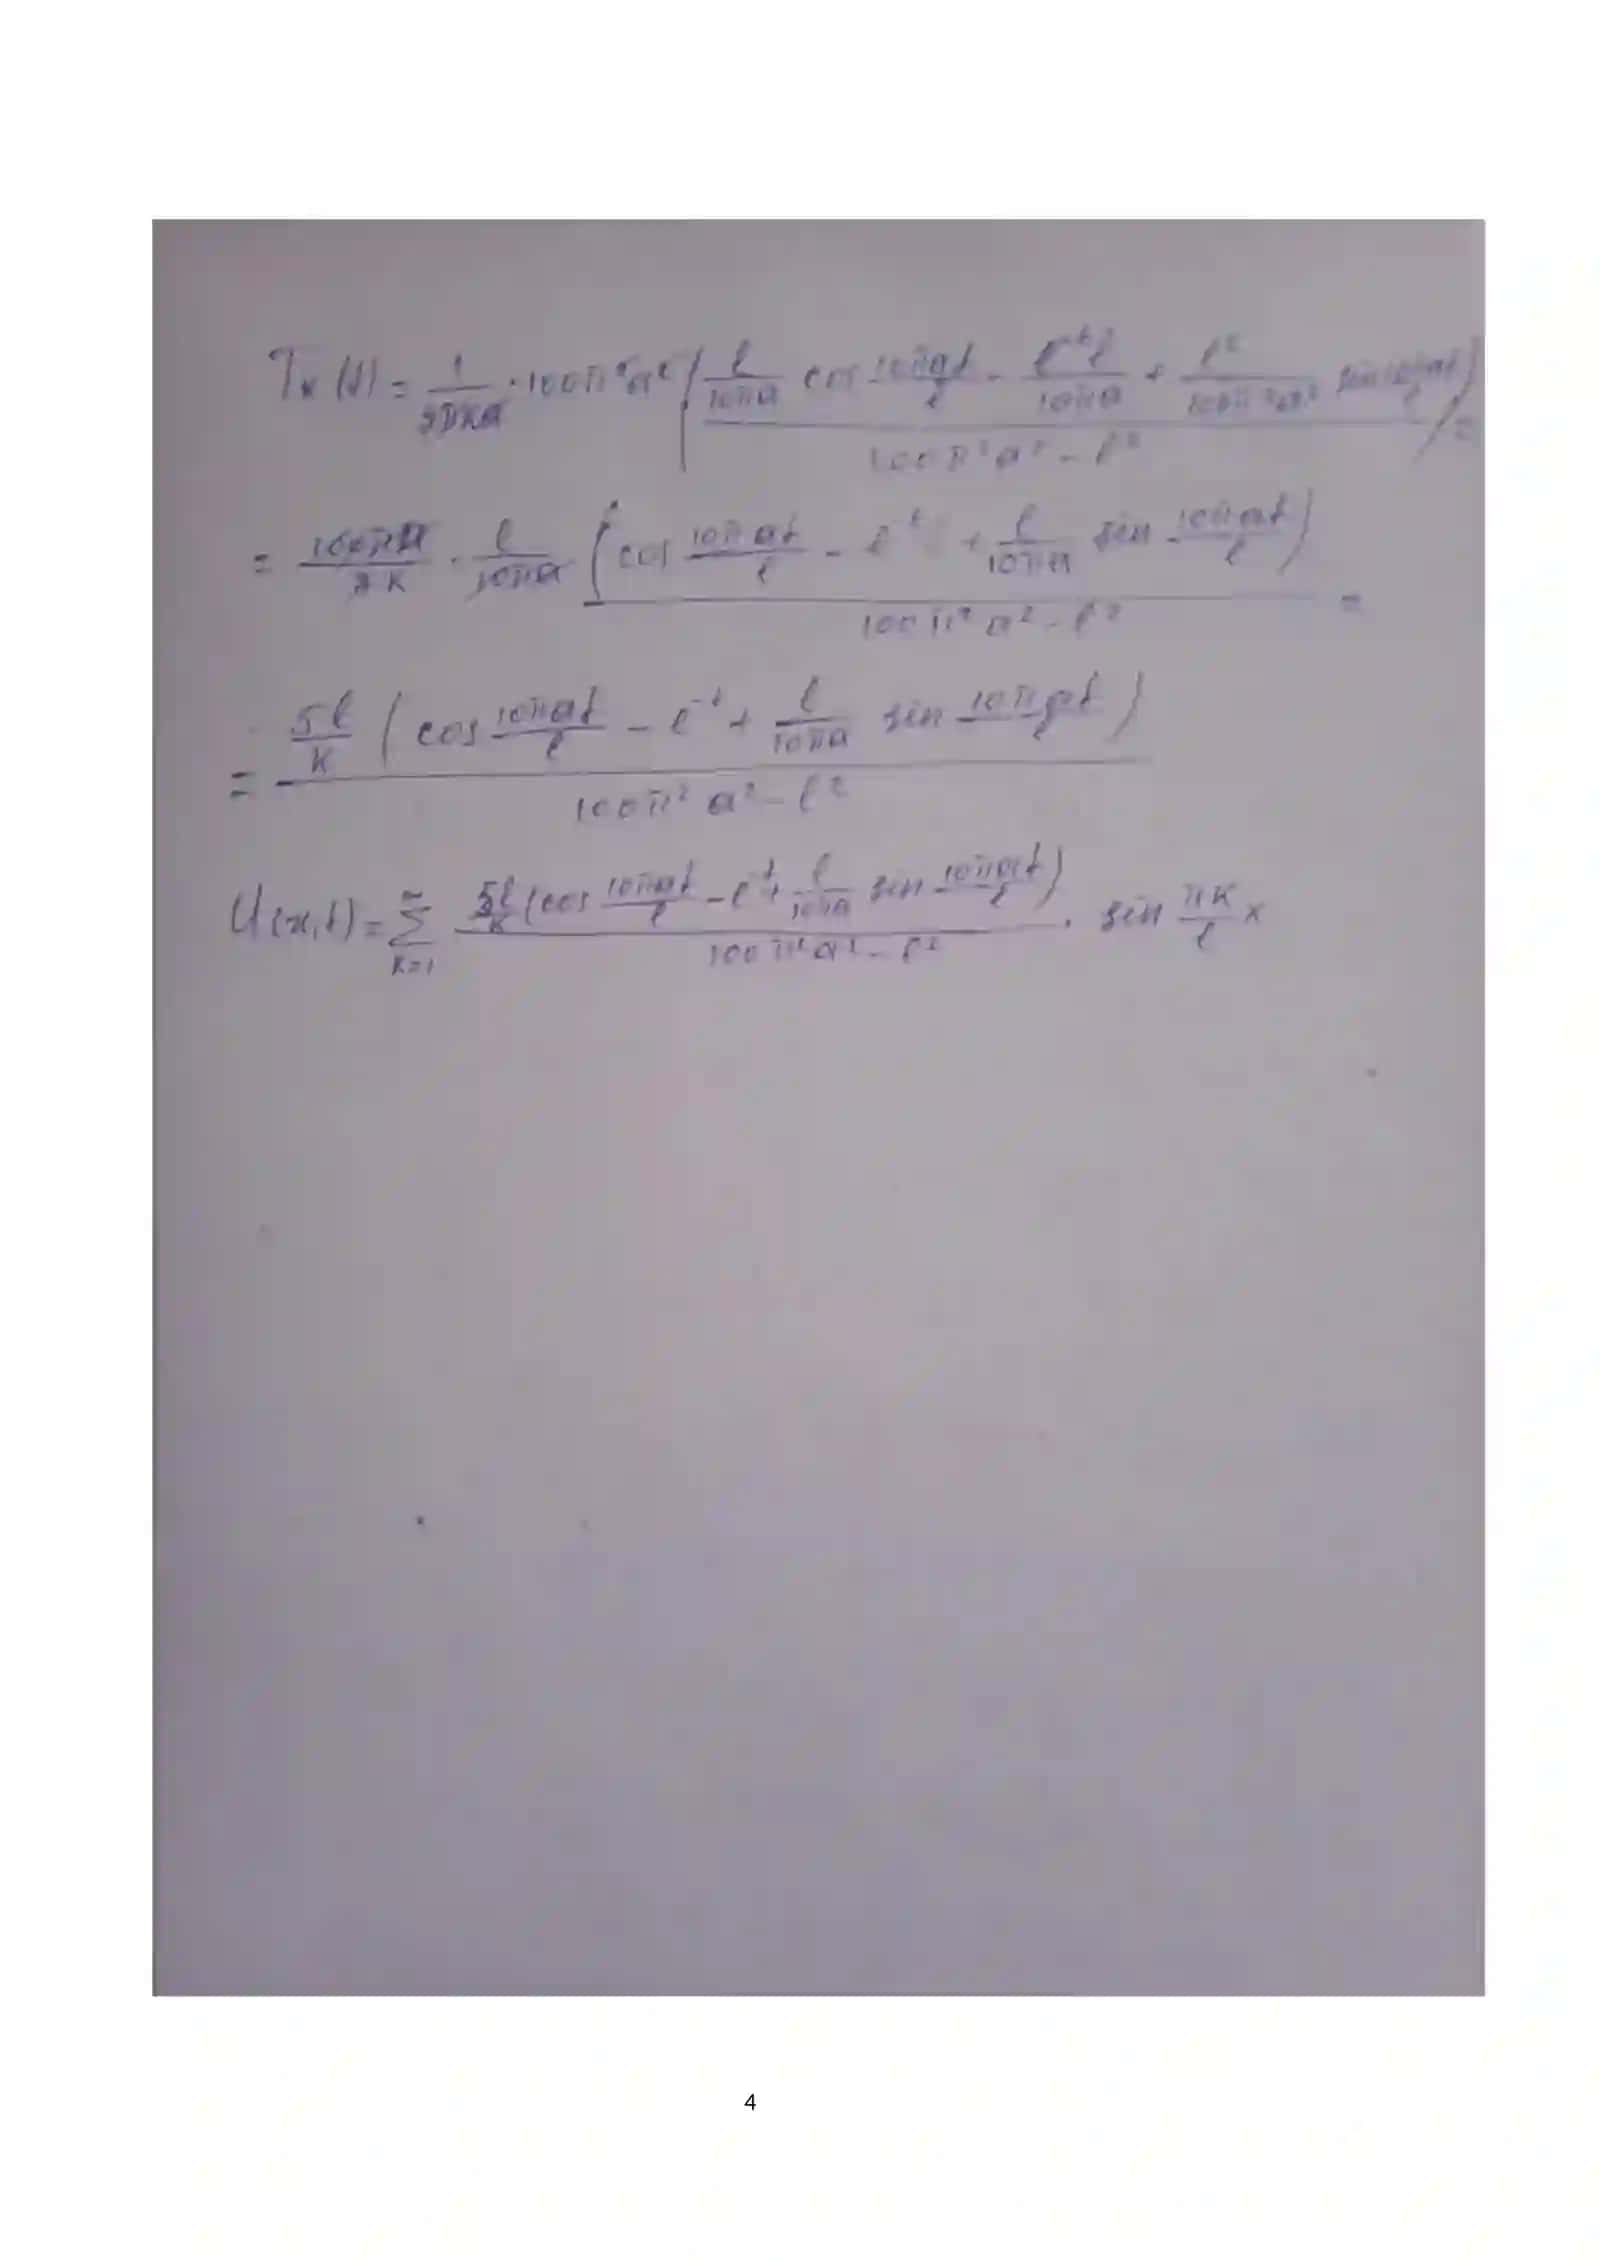 Tк(t) = 1/2πка · 100π²a² ( (l/10πa cos 10πat/l - e⁻ᵗl/10πa + l²/100π²a² sin 10πat/l) / 100π²a² - l² ) =
= 100πa/2к · l/10πa (cos 10πat/l - e⁻ᵗ + l/10πa sin 10πat/l) / 100π²a² - l² =
= 5l/к (cos 10πat/l - e⁻ᵗ + l/10πa sin 10πat/l) / 100π²a² - l²
U(x,t) = ∑ к=1 ∞ 5l/к (cos 10πat/l - e⁻ᵗ + l/10πa sin 10πat/l) / 100π²a² - l² · sin πк/l x
4